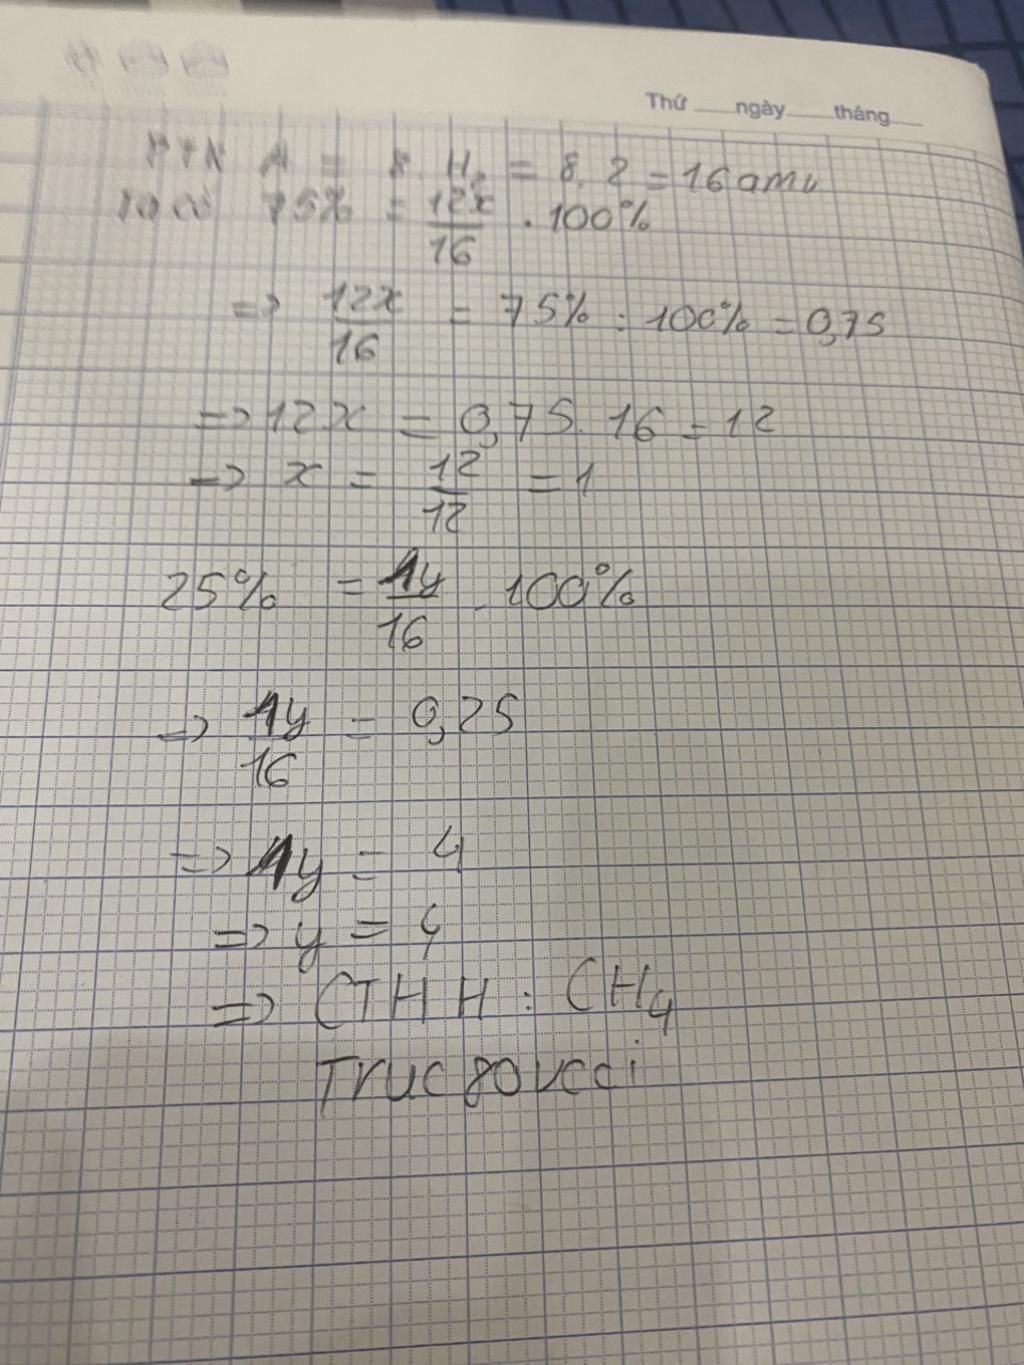 Thứ ngày tháng
A = 8. H₂ = 8. 2 = 16 amu
75% = 12x/16 . 100%
=> 12x/16 = 75% : 100% = 0,75
=> 12x = 0,75. 16 = 12
=> x = 12/12 = 1
25% = 1y/16 . 100%
=> 1y/16 = 0,25
=> 1y = 4
=> y = 4
=> CTHH : CH₄